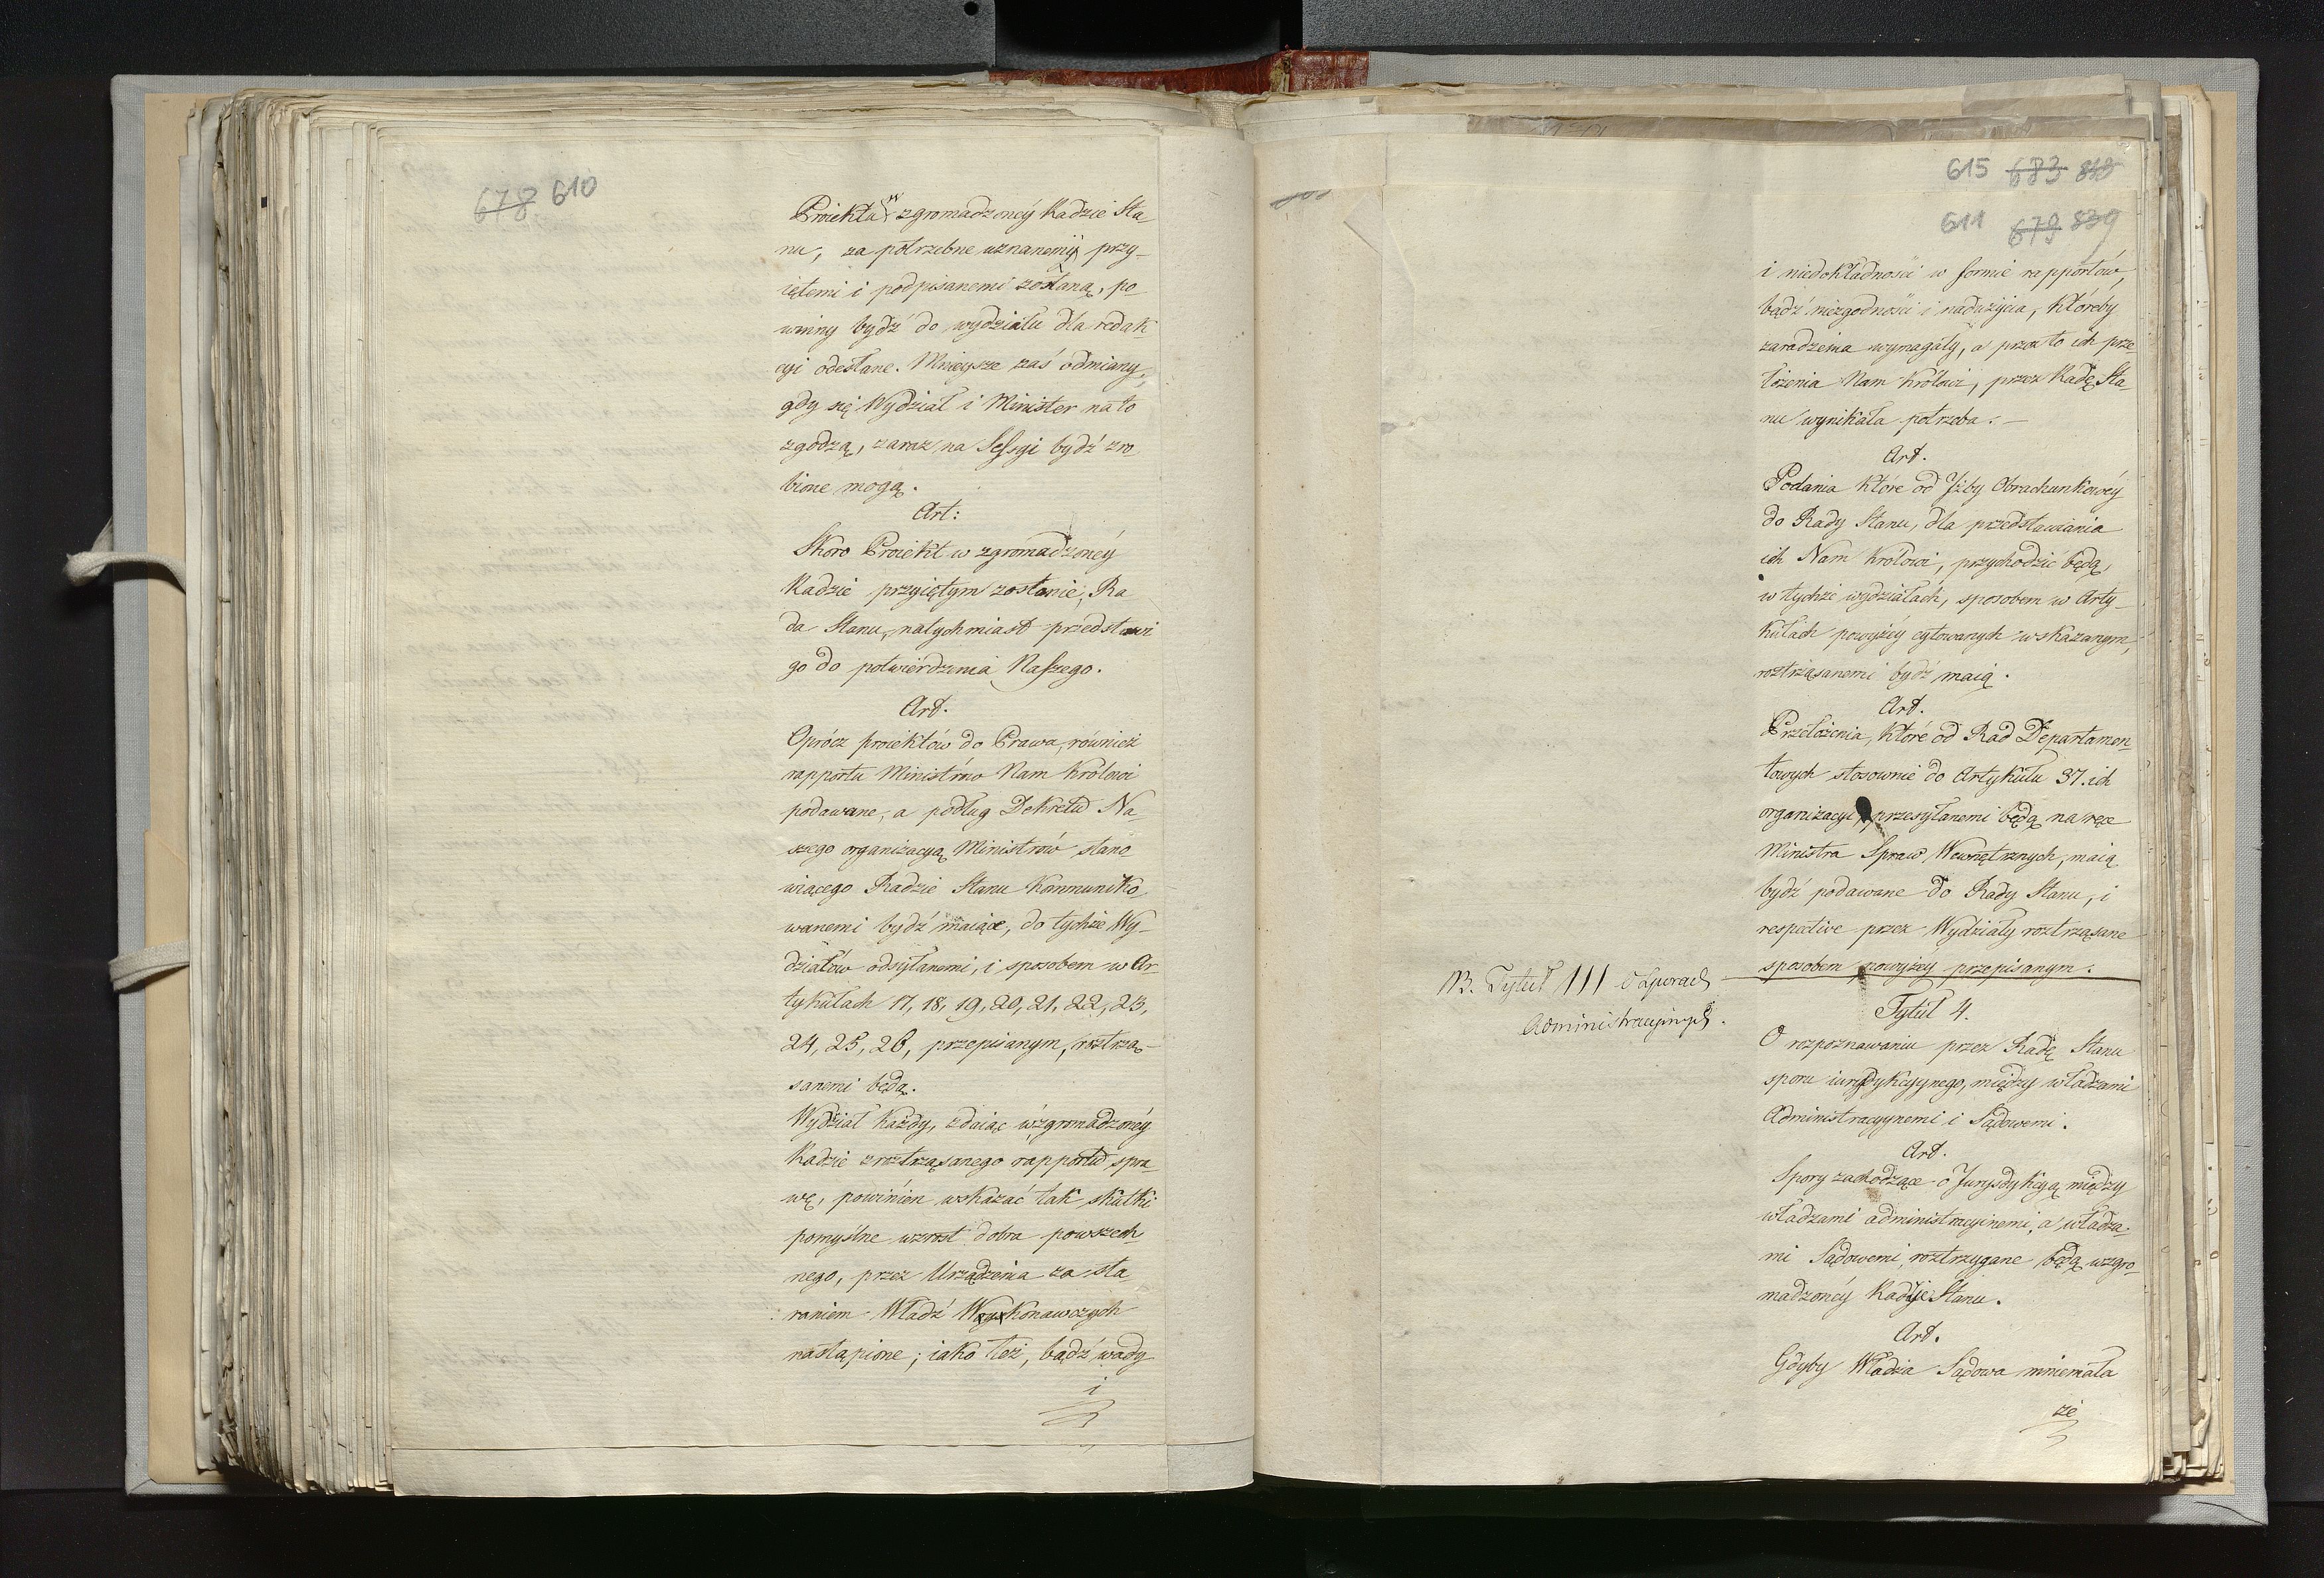 678 610
Proiekta w zgromadzonéy Radzie Sta
nu, za potrzebne uznanemi, przy-
iętemi i podpisanemi zostaną, po
winny bydź do wydziału dla redak
cyi odesłane. Mnieysze zaś odmiany,
gdy się Wydział i Minister na to
zgodzą, zaraz na Sessyi bydź zro
bione mogą.
Art:
Skoro Proiekt w zgromadzonéy
Radzie przyiętym zostanie, Ra
da Stanu, natychmiast przedstawi
go do potwierdzenia Naszego.
Art.
Oprócz proiektów do Prawa, również
rapporta Ministrów Nam Królowi
podawane, a podług Dekretu Na-
szego organizacyą Ministrów stano
wiącego Radzie Stanu kommuniko
wanemi bydź maiące, do tychże Wy-
działów odsyłanemi, i sposobem w Ar
tykułach 17, 18, 19, 20, 21, 22, 23,
24, 25, 26, przepisanym, roztrzą-
sanemi będą.
Wydział każdy, zdaiąc w zgromadzonéy
Radzie z roztrząsanego rapportu spra
wę, powinien wskazać tak skutki
pomyślne wzrost dobra powszech
nego, przez Urządzenia za sta
raniem Władz Wykonawczych
nastąpione; iako też, bądź wady
i
615 683 840
611 679 839
i niedokładności w formie rapportów,
bądź niezgodności i nadużycia, któreby
zaradzenia wymagały, a przeto ich prze
łożenia Nam Królowi, przez Radę Sta
nu wynikała potrzeba. –
Art.
Podania które od Izby Obrachunkowéy
do Rady Stanu, dla przedstawiania
ich Nam Królowi, przychodzić będą,
w tychże wydziałach, sposobem w Arty-
kułach powyżéy cytowanych wskazanym,
roztrząsanemi bydź maią.
Art.
Przełożenia, które od Rad Departamen
towych stosownie do Artykułu 37. ich
organizacyi, przesyłanemi będą na ręce
Ministra Spraw Wewnętrznych, maią
bydź podawane do Rady Stanu, i
respective przez Wydziały roztrząsane
sposobem powyżey przepisanym.
NB. Tytuł III o Sporach
Administracyinych.
Tytuł 4.
O rozpoznawaniu przez Radę Stanu
sporu iurysdykcyynego, między władzami
Administracyynemi i Sądowemi.
Art.
Spory zachodzące o Jurysdykcyą między
władzami administracyinemi, a władza-
mi Sądowemi, roztrzygane będą w zgro-
madzonéy Radzie Stanu.
Art.
Gdyby Władza Sądowa mniemała
że